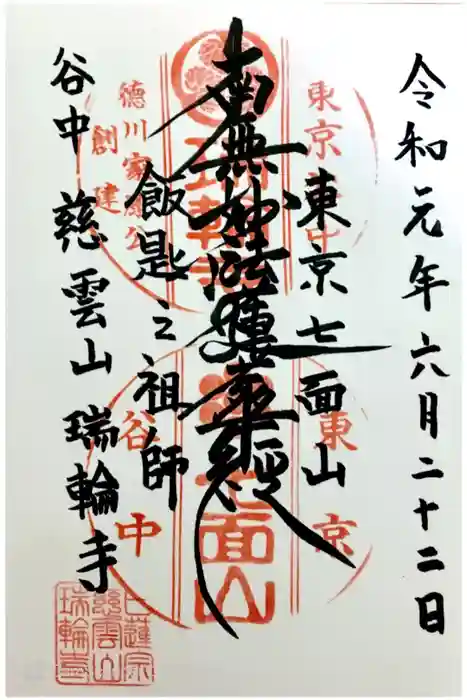 令和元年六月二十二日
東京七面山
南無妙法蓮華経
飯匙之祖師
谷中 慈雲山 瑞輪寺
東京谷中
瑞輪寺
徳川家康公
創建
東京
七面山
谷中
日蓮宗
慈雲山
瑞輪寺